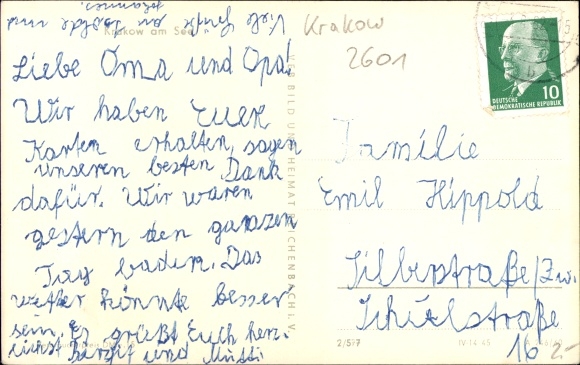 Viele Grüße an Isolde und
Johannes.
Krakow am See
Liebe Oma und Opa!
Wir haben Euer
Karten erhalten, sagen
unseren besten Dank
dafür. Wir waren
gestern den ganzen
Tag baden. Das
wetter könnte besser
sein. Es grüßt Euch herz
lichst und Mutti
VERBILD UND HEIMAT REICHENBACH I. V.
Krakow
2601
10
DEUTSCHE
DEMOKRATISCHE REPUBLIK
Familie
Emil Hippold
Silberstraße/Zw.
Schulstraße
16
2/597
IV-14-45
2.-